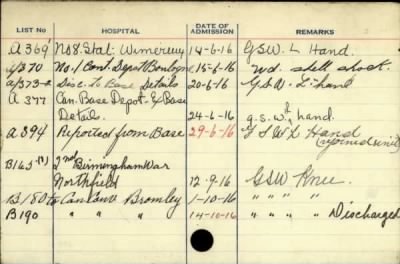 LIST NO. HOSPITAL DATE OF ADMISSION REMARKS
A369 No 8. Stat: Wimereux 14-6-16 GSW. L Hand.
A/370 No. 1 Cont. Depot Boulogne 15-6-16 Wd. shell shock.
A/373-2 Disc. to Base Details 20-6-16 G.S.W. L. hand
A 377 Can. Base Depot. Base
Detail. 24-6-16 g.s.w. hand.
A 394 Reported from Base 29-6-16 G S W L Hand
(rejoined unit)
B163 2nd Birmingham War
Northfield 12-9-16 GSW Knee
B180 Can Conv Bromley 1-10-16 " " "
B190 " " " 14-10-16 " " " Discharged